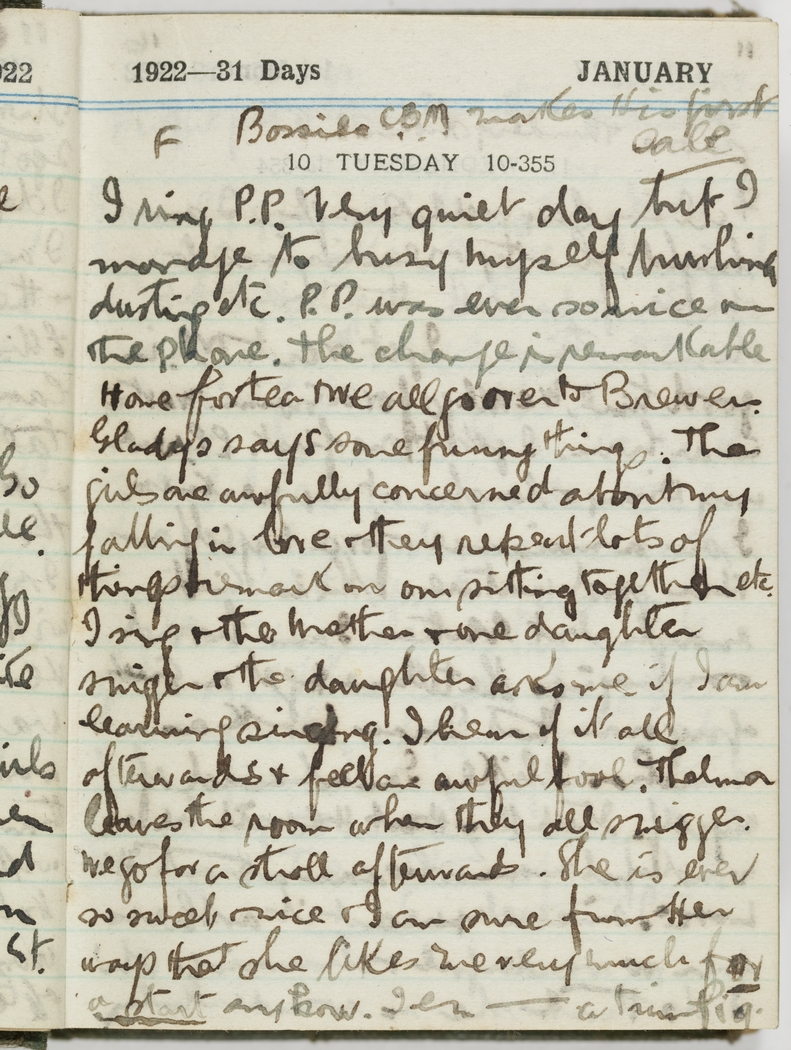 022
1922—31 Days JANUARY
11
F C.B.M makes His first
Call
10 TUESDAY 10-355
I ring P.P. Very quiet day but I
manage to busy myself brushing
dusting etc. P.P. was ever so nice on
the phone. The change is remarkable
Home for tea & we all go over to Brewers.
Gladys says some funny things. The
girls are awfully concerned about my
falling in love & they repeat lots of
things & remark on our sitting together etc.
I sing & the Mother & one daughter
snigger & the daughter asks me if I am
learning singing. I hear of it all
afterwards & feel an awful fool. Thelma
leaves the room when they all snigger.
We go for a stroll afterwards. She is ever
so sweet & nice & I am sure from Her
ways that she likes me very much for
a start anyhow. — a